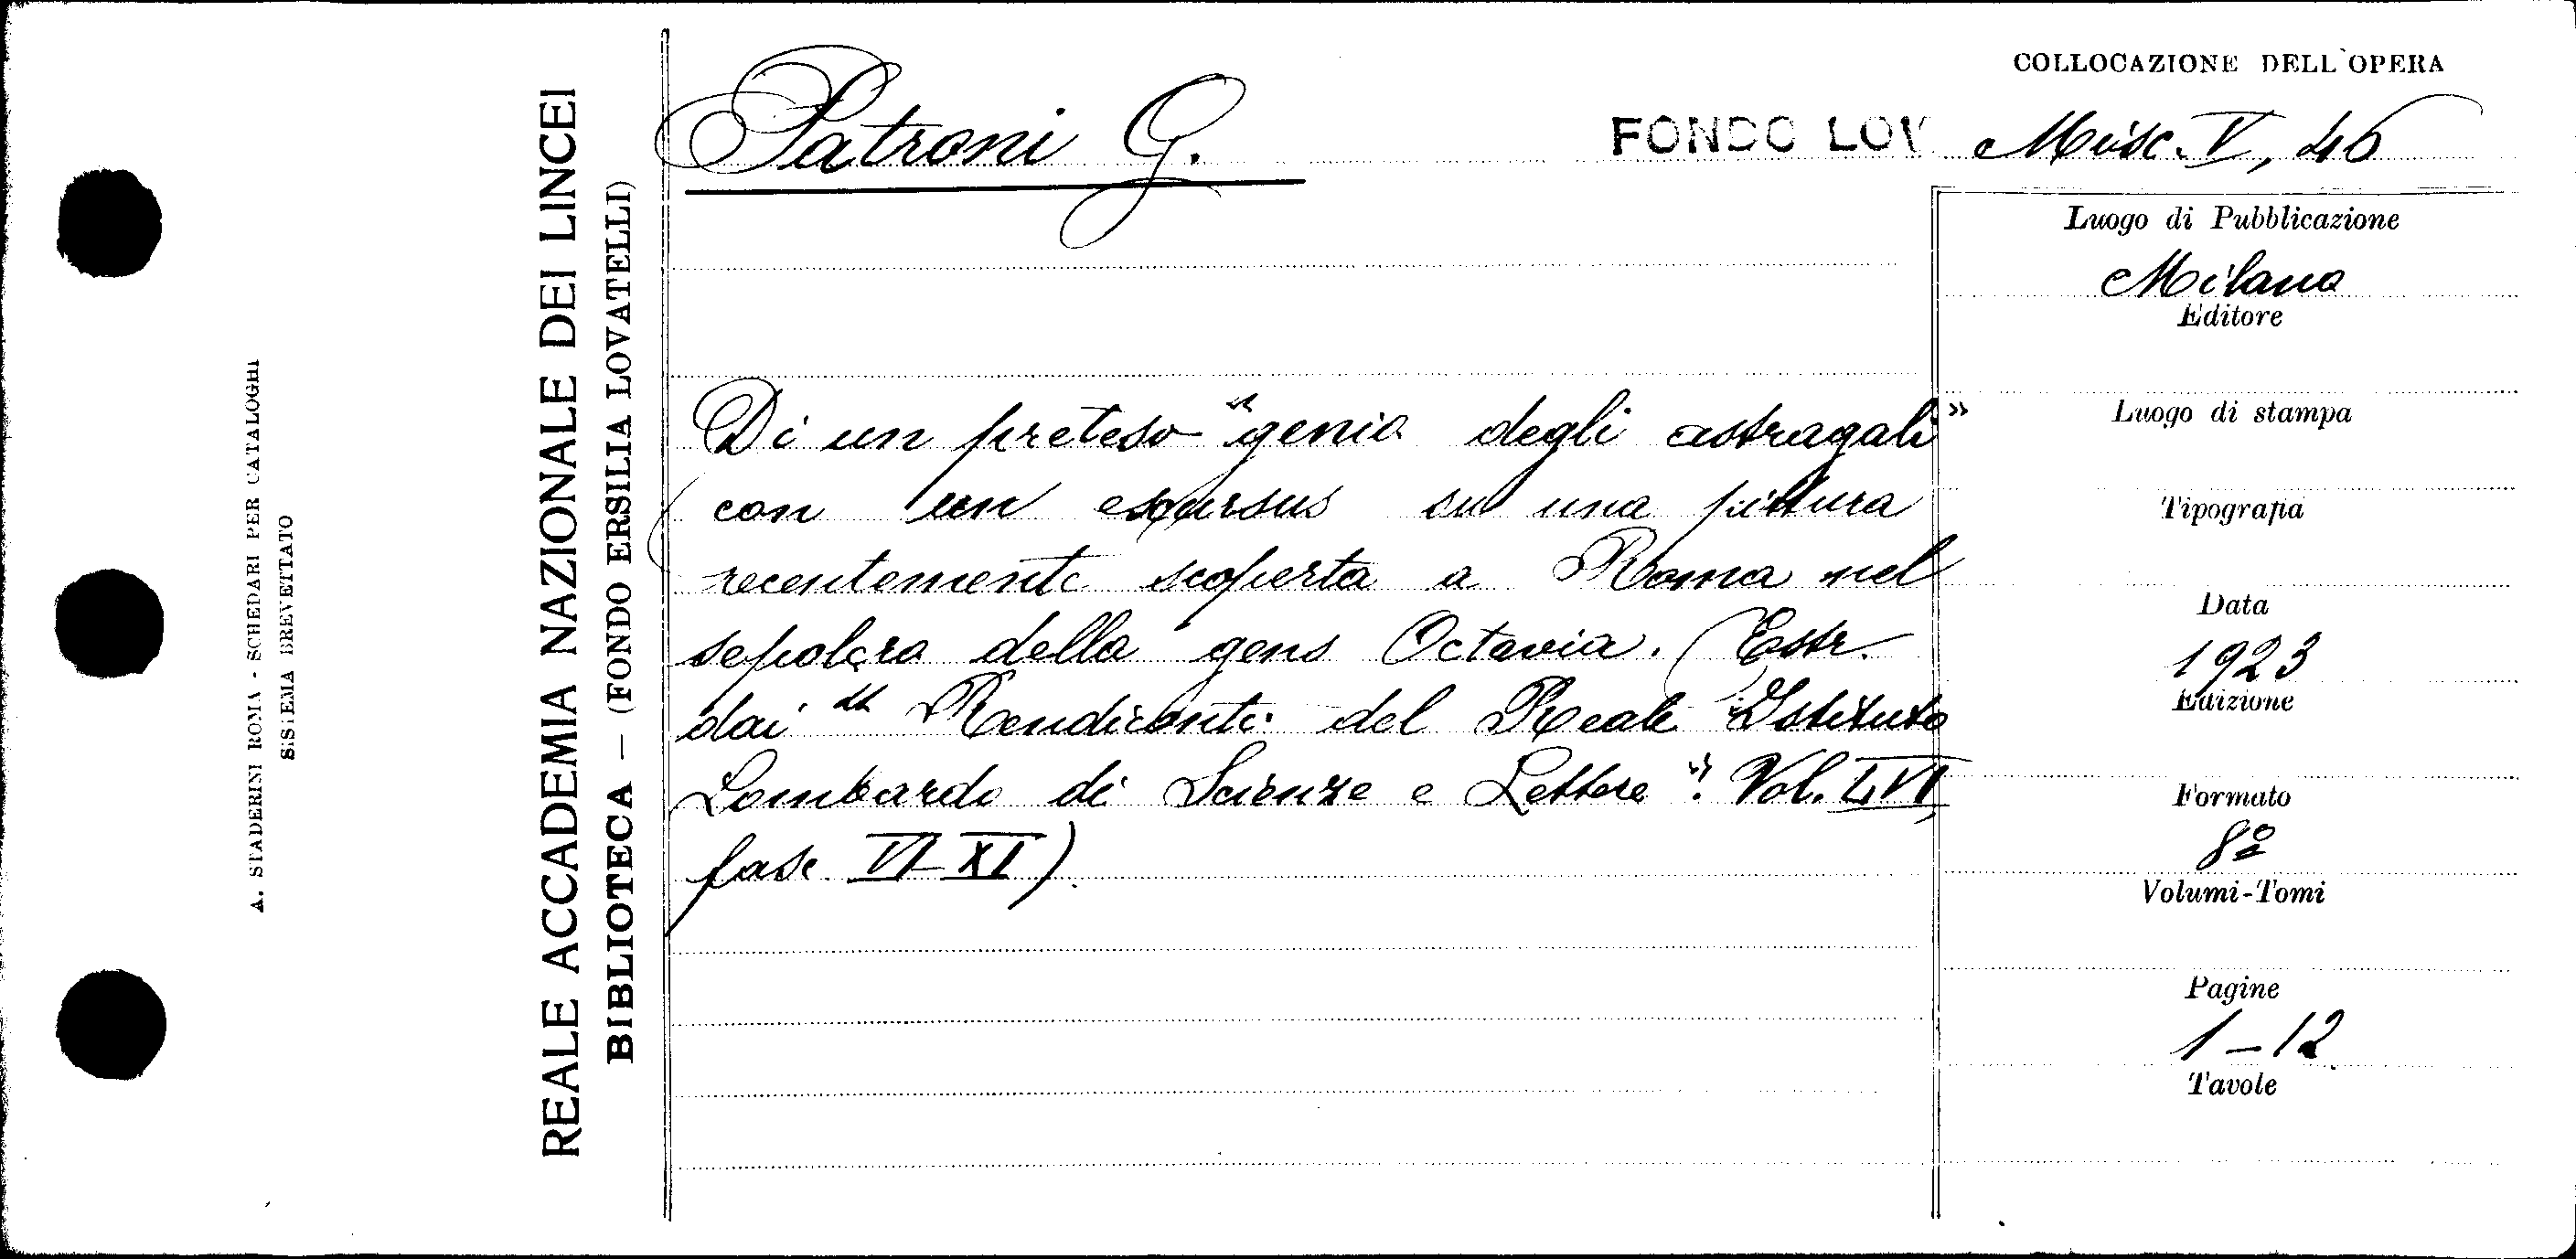 A. STADERINI ROMA - SCHEDARI PER CATALOGHI
SISTEMA BREVETTATO
REALE ACCADEMIA NAZIONALE DEI LINCEI
BIBLIOTECA — (FONDO ERSILIA LOVATELLI)
Patroni G.
FONDO LOV
COLLOCAZIONE DELL'OPERA
Misc. V, 46
Di un preteso "genio degli astragali"
(con un excursus su una pittura
recentemente scoperta a Roma nel
sepolcro della gens Octavia. (Estr.
dai "Rendiconti del Reale Istituto
Lombardo di Scienze e Lettere". Vol. LVI,
fasc. VI-XI)
Luogo di Pubblicazione
Milano
Editore
Luogo di stampa
Tipografia
Data
1923
Edizione
Formato
8º
Volumi-Tomi
Pagine
1-12
Tavole